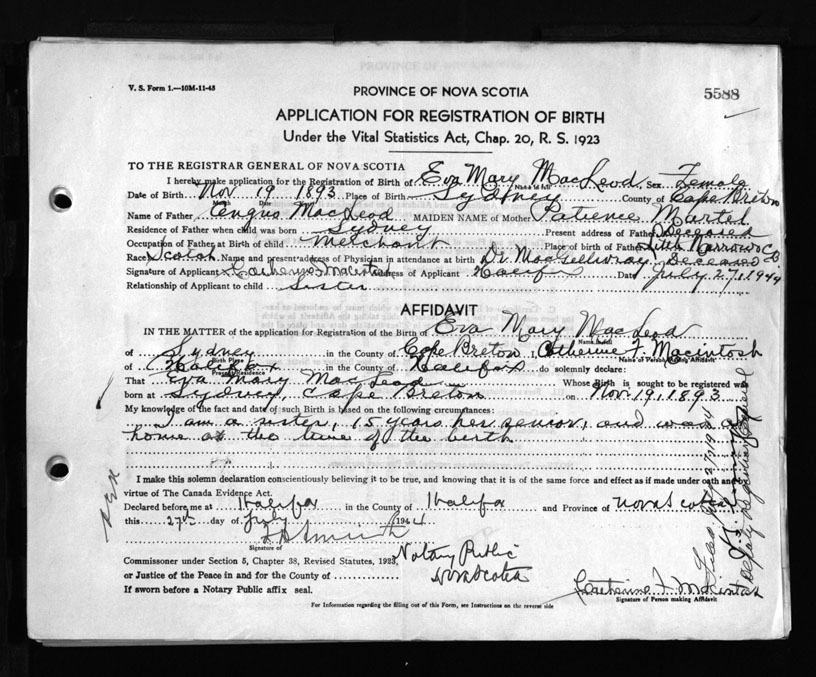 V. S. Form 1.—10M-11-43
PROVINCE OF NOVA SCOTIA
5588
APPLICATION FOR REGISTRATION OF BIRTH
Under the Vital Statistics Act, Chap. 20, R. S. 1923
TO THE REGISTRAR GENERAL OF NOVA SCOTIA
I hereby make application for the Registration of Birth of Eva Mary MacLeod Sex Female
Name in full
Date of Birth Nov. 19 1893 Place of Birth Sydney County of Cape Breton
Month Date
Name of Father Angus MacLeod MAIDEN NAME of Mother Patience Martel
Residence of Father when child was born Sydney Present address of Father Deceased
Occupation of Father at Birth of child Merchant Place of birth of Father Little Narrows C B
Race Scotch Name and present address of Physician in attendance at birth Dr. MacGillivray, Deceased
Signature of Applicant Address of Applicant Halifax Date July 27, 1944
Relationship of Applicant to child Sister
AFFIDAVIT
IN THE MATTER of the application for Registration of the Birth of Eva Mary MacLeod
Name in full
of Sydney in the County of Cape Breton, I Catherine F. Macintosh
Birth Place Name of Person making Affidavit
of Halifax in the County of Halifax do solemnly declare:
Present Residence
That Eva Mary MacLeod Whose Birth is sought to be registered was
born at Sydney, Cape Breton on Nov. 19, 1893
My knowledge of the fact and date of such Birth is based on the following circumstances:
I am a sister, 15 years her senior, and was at
home at the time of the birth
I make this solemn declaration conscientiously believing it to be true, and knowing that it is of the same force and effect as if made under oath and
virtue of The Canada Evidence Act.
Declared before me at Halifax in the County of Halifax and Province of Nova Scotia
this 27th day of July 1944
Signature of
Commissioner under Section 5, Chapter 38, Revised Statutes, 1923, Notary Public
or Justice of the Peace in and for the County of Nova Scotia
If sworn before a Notary Public affix seal.
Catherine F. McIntosh
Signature of Person making Affidavit
For Information regarding the filling out of this Form, see Instructions on the reverse side
Deputy Registrar General